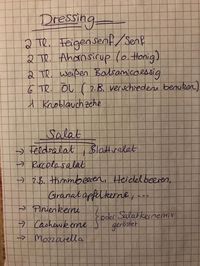 Dressing
2 TL. Feigensenf/Senf
2 TL. Ahornsirup (o. Honig)
2 TL. weißen Balsamicoessig
6 TL. Öl (z.B. verschiedene benutzen)
1 Knoblauchzehe
Salat
→ Feldsalat, Blattsalat
→ Rucolasalat
→ z.B. Himmbeeren, Heidelbeeren,
Granatapfelkerne, ...
→ Pinienkerne
→ Cashewkerne
oder Salatkernemix
geröstet
→ Mozzarella